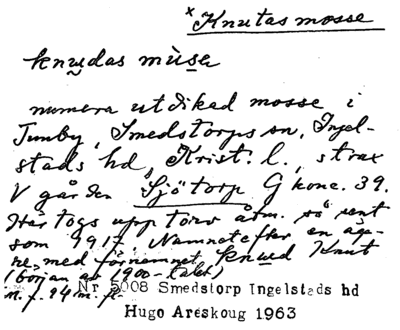 × Knutas mosse
knu̮das mùsa
numera utdikad mosse i
Tunby, Smedstorps sn, Ingel-
stads hd, Krist. l., strax
V gården Sjötorp G konc. 39.
Här togs upp torv ännu så sent
som 1917. Namnet efter en äga-
re med förnamnet Knut
(början av 1900-talet)
Nr 5008 Smedstorp Ingelstads hd
Hugo Areskoug 1963